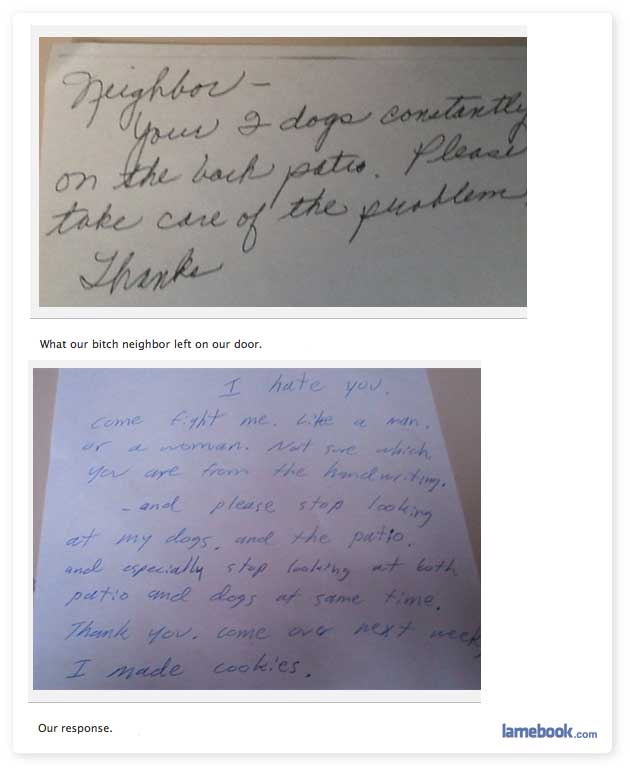 Neighbor –
Your 2 dogs constantly
on the back patio. Please
take care of the problem.
Thanks
What our bitch neighbor left on our door.
I hate you.
come fight me. Like a man.
or a woman. Not sure which
you are from the handwriting.
- and please stop looking
at my dogs. and the patio.
and especially stop looking at both
patio and dogs at same time.
Thank you. come over next week
I made cookies.
Our response.
lamebook.com